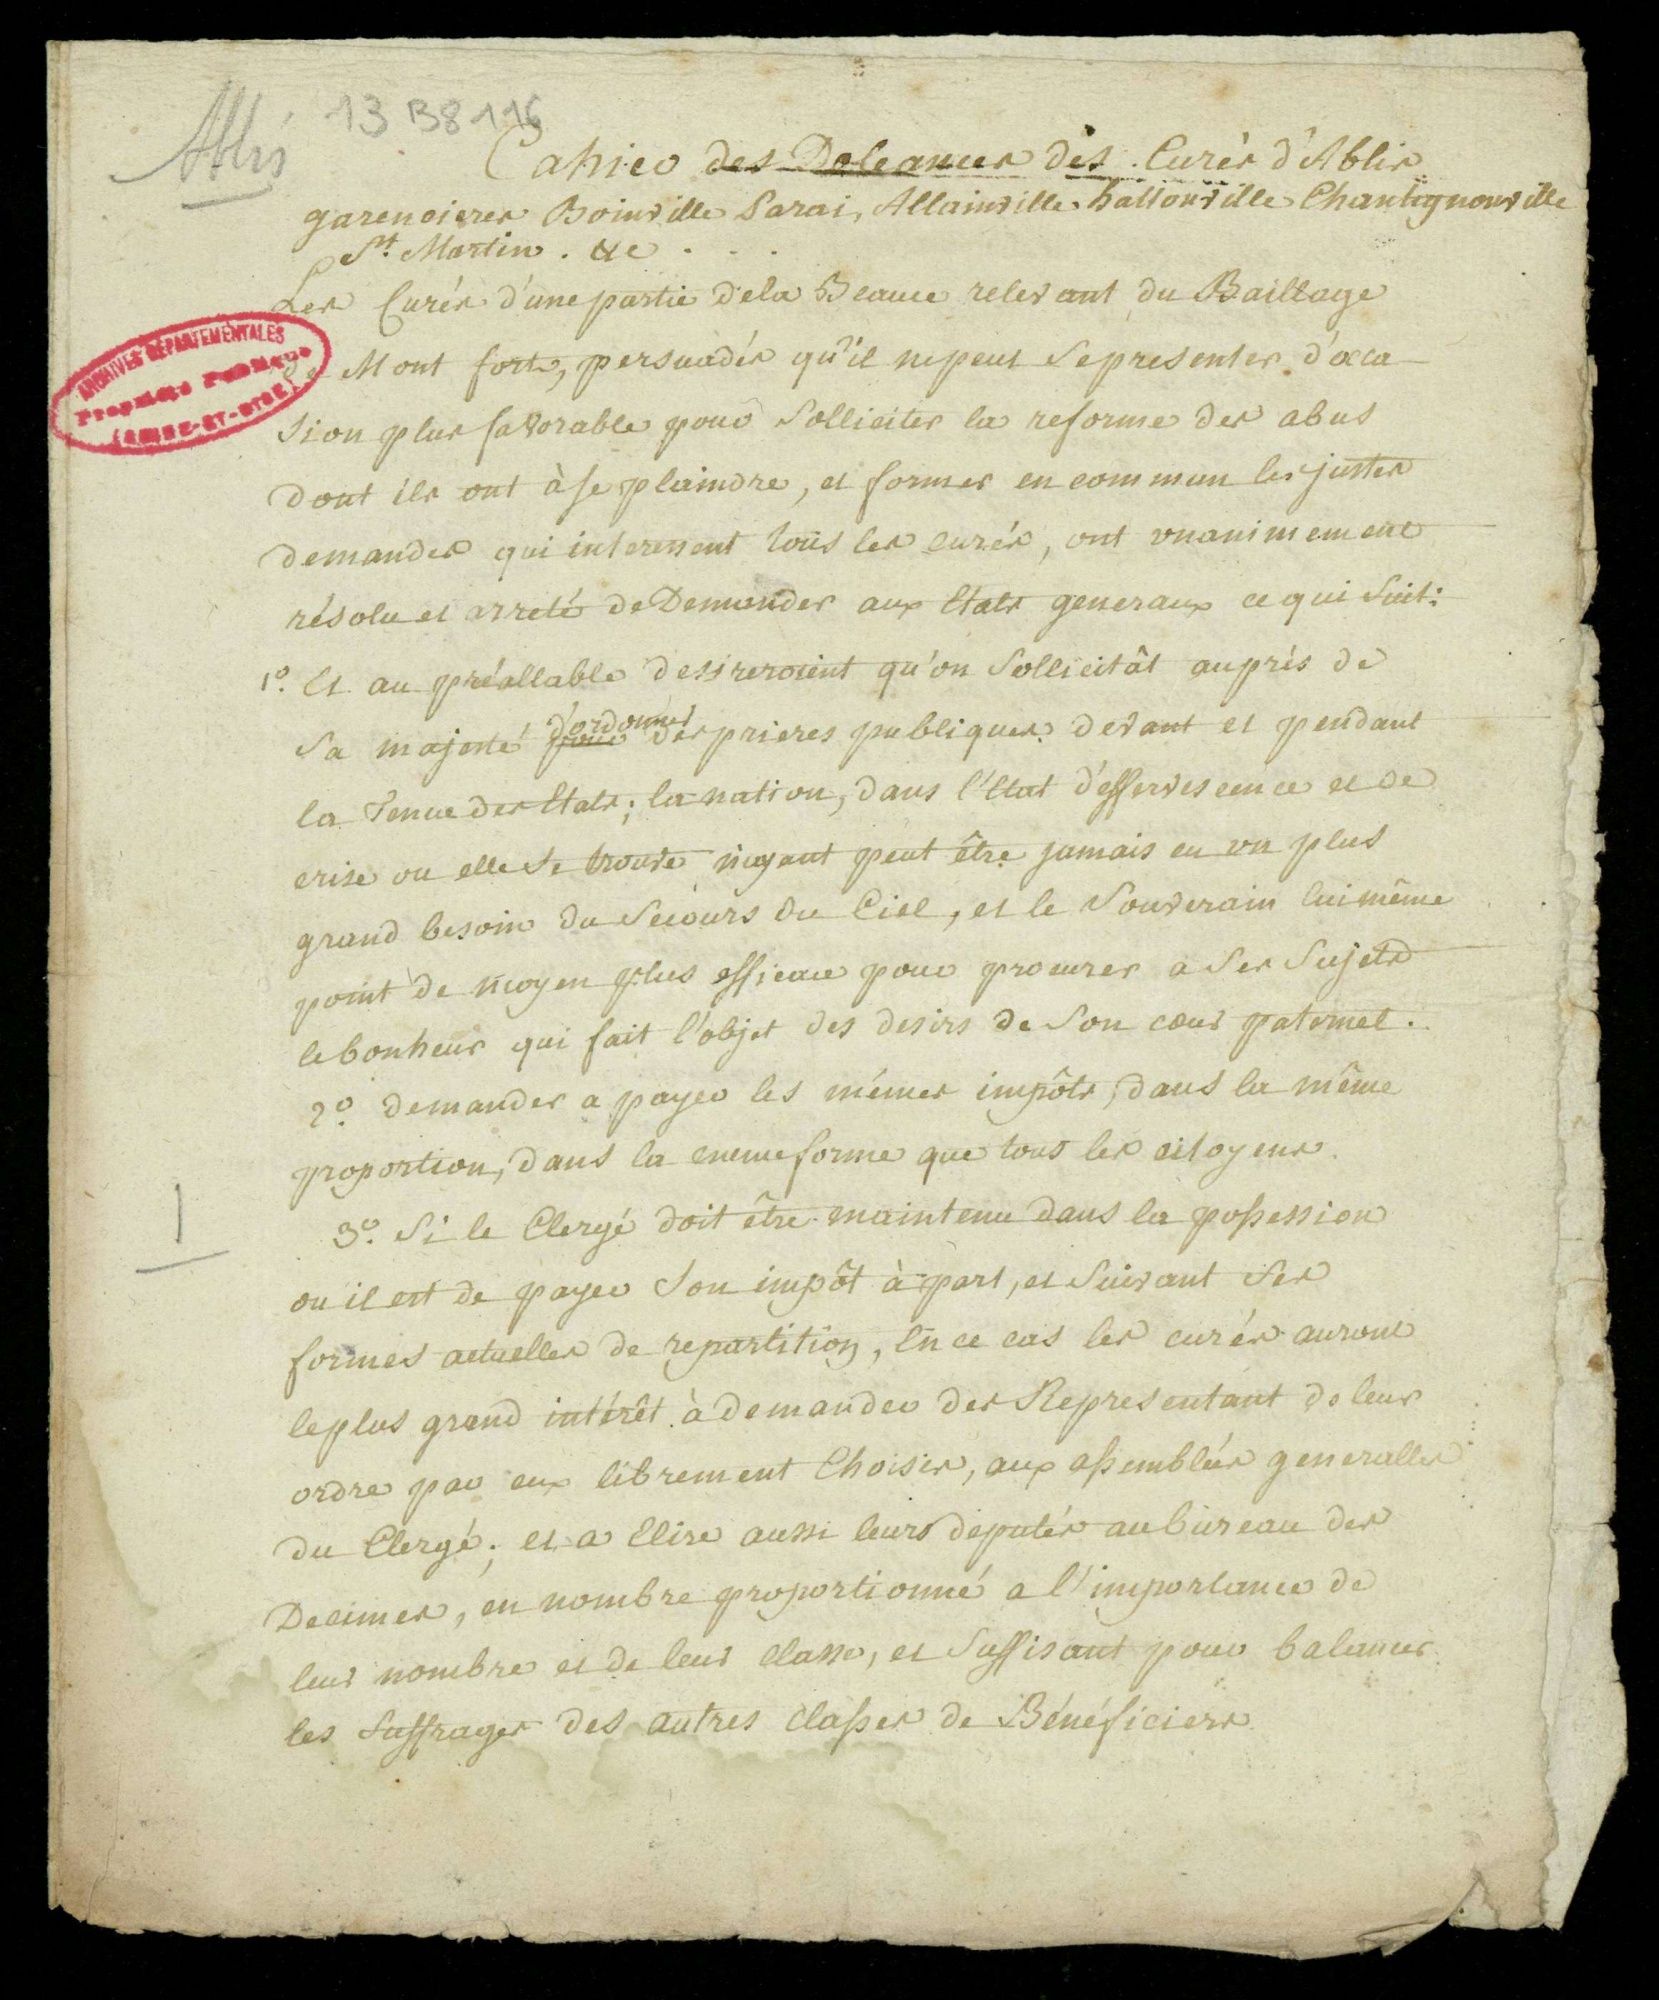 Ablis
13 B8116
Cahier des Doleances des Curés d'Ablis
garencieres Boinville Parai, Allainville hattonville Chantignonville
St. Martin . &c . . .
Les Curés d'une partie dela Beauce relevant du Bailliage
de Mont fort, persuadés qu'il nepeut sepresenter d'occa-
sion plus favorable pour solliciter la reforme des abus
dont ils ont à se plaindre, et former en commun les justes
demandes qui interessent tous les curés, ont unanimement
résolu et arreté de Demander aux Etats generaux ce qui suit:
1º. Et au préallable desireroient qu'on sollicitât auprès de
d'ordonner
sa majesté pour des prieres publiques devant et pendant
la Tenue des Etats; la nation, dans l'Etat d'effervescence et de
crise ou elle se trouve n'ayant peut être jamais eu un plus
grand besoin du secours du Ciel, et le Souverain lui même
point de moyen plus efficace pour procurer a ses sujets
lebonheur qui fait l'objet des desirs de son cœur paternel.
2º. demander a payer les mêmes impôts, dans la même
proportion, dans la meme forme que tous les citoyens.
3º. Si le Clergé doit être maintenu dans la possession
ou il est de payer son impôt à part, et suivant ses
formes actuelles de repartition, En ce cas les curés auront
leplus grand intérêt à demander des Representant de leur
ordre par eux librement Choisis, aux assemblées generalles
du Clergé; et a Elire aussi leurs deputés aubureau des
Decimes, en nombre proportionné a l'importance de
leur nombre et de leur classe, et suffisant pour balancer
les suffrages des autres classes de Bénéficiers
ARCHIVES DÉPARTEMENTALES
Propriété Publique
(SEINE-ET-OISE)
1